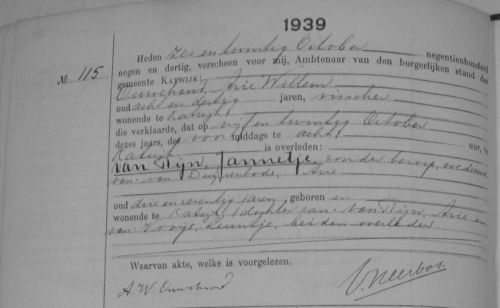 1939
Heden zes en twintig October negentienhonderd
negen en dertig, verscheen voor mij, Ambtenaar van den burgerlijken stand der
No 115
gemeente KATWIJK:
Ouwehand, Arie Willem
oud acht en dertig jaren, visscher
wonende te Katwijk
die verklaarde, dat op vijf en twintig October
dezes jaars, des voor middags te acht uur, te
Katwijk is overleden:
van Rijn, Jannetje, zonder beroep, weduwe
van: van Duijvenbode, Arie
oud drie en zeventig jaren, geboren en
wonende te Katwijk, dochter van: van Rijn, Arie en
van Leuntje, beiden overleden
Waarvan akte, welke is voorgelezen.
A W Ouwehand